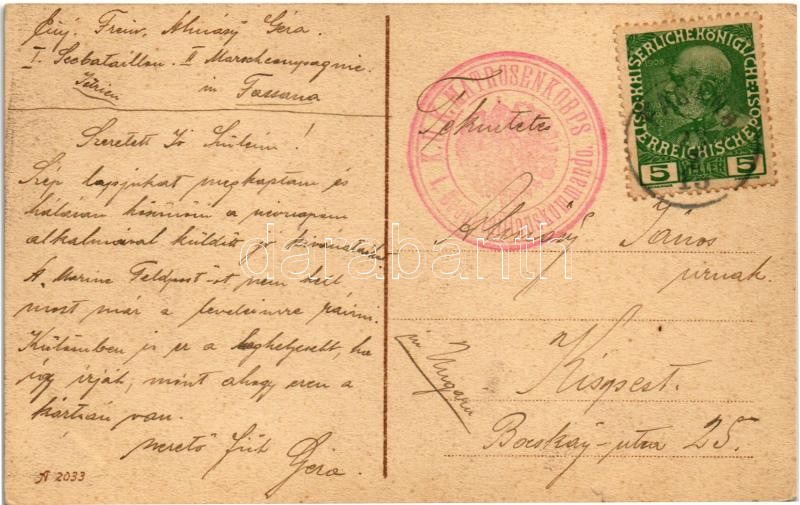 Einj. Freiw. Almásy Géza.
I. Seebataillon. II Marschcompagnie.
Istrien in Fasana
Szeretett Jó Szüleim!
Szép lapjukat megkaptam és
hálásan köszönöm a névnapom
alkalmával küldött jó kivánataikat.
A "Marine Feldpost"-ot nem kell
most már a leveleimre ráirni.
Különben is ez a leghelyesebb, ha
úgy irják, mint ahogy ezen a
kártyán van.
szerető fiuk Géza.
A 2033
K.u.K. MATROSENKORPS
KAISERLICHE KÖNIGLICHE
ÖSTERREICHISCHE POST
1908
5 HELLER 5
Tekintetes
Almásy János
urnak.
in Ungarn
Kispest.
Bocskáy-utca 25.
darabanth